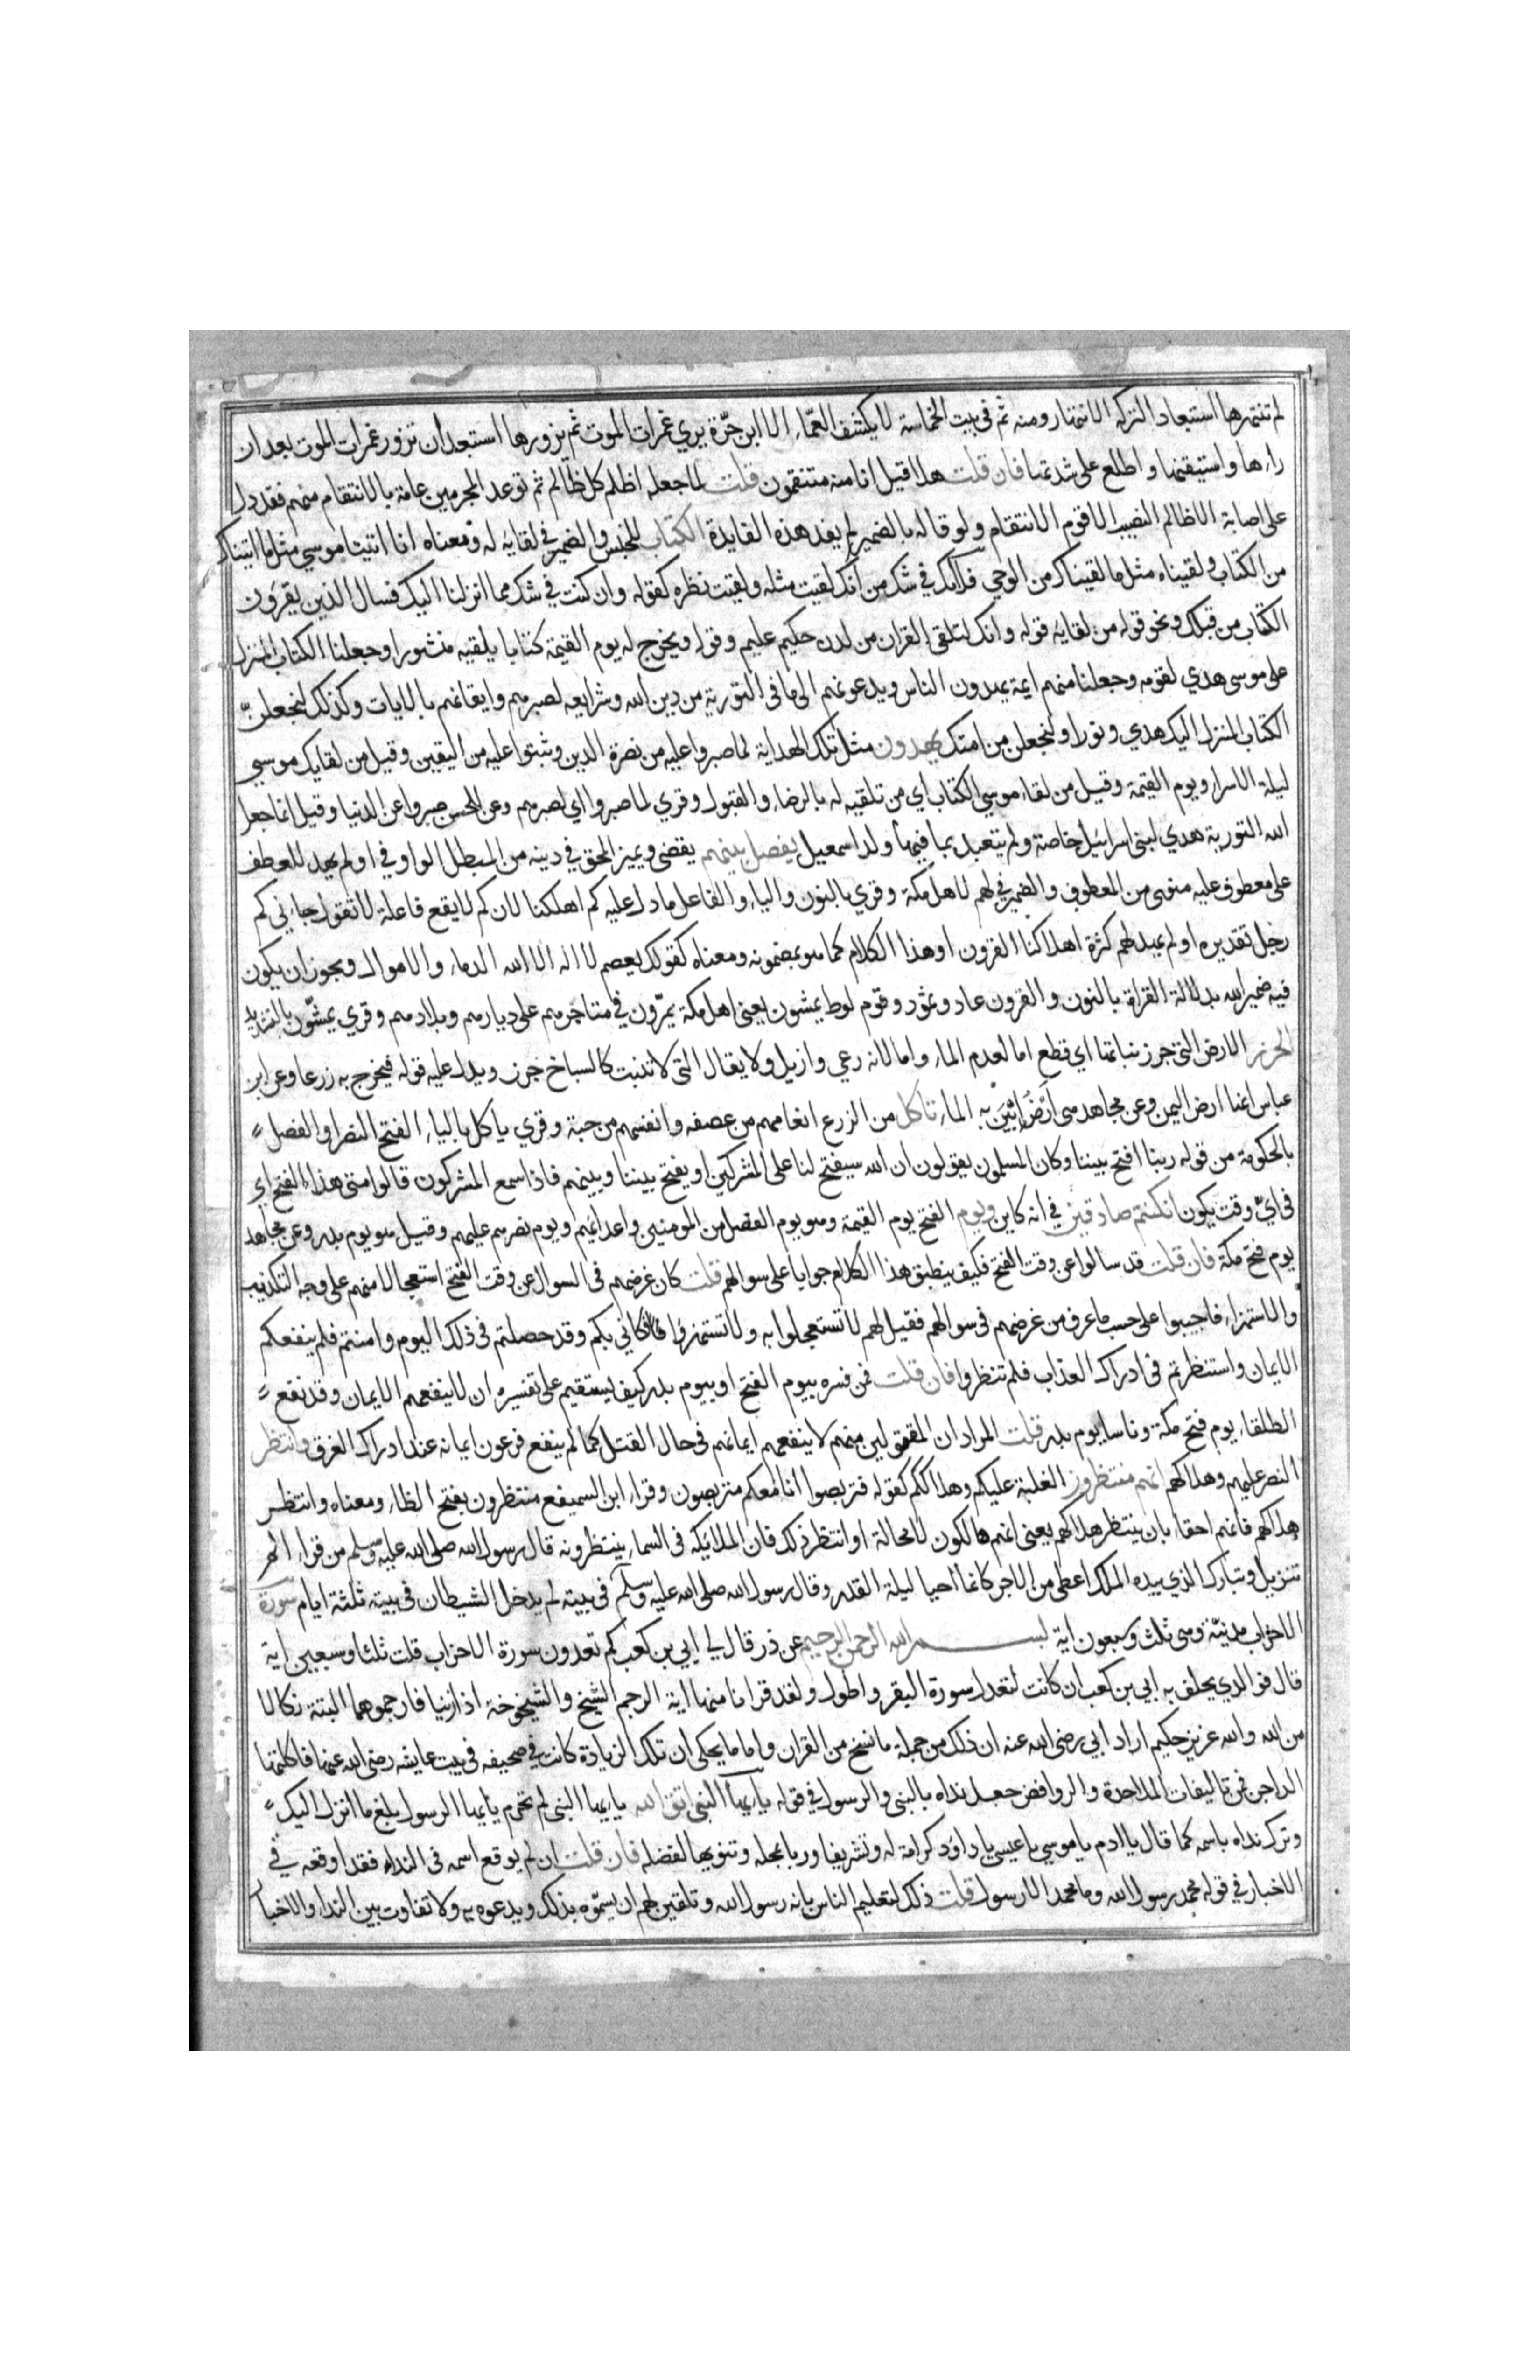 لم تنتهزها استبعاد التركه الانتهار ومنه ثم فى بيت الحماسة لا يكشف الغمّاء الا ابن حرّة يري غمرات الموت ثم يزورها استبعد ان تزور غمرات الموت بعد ان
راءها واستيقنها واطلع على شدتها فان قلت هلا قيل انا منه منتقمون قلت لما جعله اظلم كل ظالم ثم توعد المجرمين عامة بالانتقام منهم فقد دل
على اصابة الاظالم النصيب الاقوم الانتقام ولو قاله بالضمير لم يفد هذه الفايدة الكتاب للجنس والضمير في لقايه له ومعناه انا اتينا موسي مثل ما اتيناك
من الكتاب ولقيناه مثل ما لقيناك من الوحي فلا تك في شك من انك لقيت مثله ولقيت نظره كقوله وان كنت في شك مما انزلنا اليك فسال الذين يقرون
الكتاب من قبلك ونحو قوله من لقايه قوله وانك لتلقى القران من لدن حكيم عليم وقوله ويخرج له يوم القيمة كتابا يلقيه منشورا وجعلنا الكتاب المنزل
على موسى هدي لقومه وجعلنا منهم ايمة يهدون الناس ويدعونهم الى ما فى التورية من دين الله وشرايعه لصبرهم وايقانهم بالايات وكذلك لنجعلنّ
الكتاب المنزل اليك هدي ونورا ولنجعلن من امتك يهدون مثل تلك الهداية لما صبروا عليه من نصرة الدين وثبتوا عليه من اليقين وقيل من لقايك موسي
ليلة الاسرا ويوم القيمة وقيل من لقاء موسي الكتاب اي من تلقيه له بالرضاء والقبول وقري لما صبروا اي لصبرهم وعن الحسن صبروا عن الدنيا وقيل انما جعل
الله التورية هدي لبنى اسرائيل خاصة ولم يتعبد بما فيها ولد اسمعيل يفصل بينهم يقضى ويميز المحق في دينه من المبطل الواو في اولم يهد للعطف
على معطوف عليه منوى من المعطوف والضمير في لهم لاهل مكة وقري بالنون والياء والفاعل ما دل عليه كم اهلكنا لان كم لا يقع فاعلة لا تقول جاءنى كم
رجل تقديره اولم يهد لهم كثرة اهلاكنا القرون او هذا الكلام كما هو بمضمونه ومعناه كقولك يعصم لا اله الا الله الدماء والاموال ويجوز ان يكون
فيه ضمير الله بدلالة القراة بالنون والقرون عاد وثمود وقوم لوط يمشون يعنى اهل مكة يمرّون في متاجرهم على ديارهم وبلادهم وقري يمشّون بالتشديد
الجرز الارض التى جرز نباتها اي قطع اما لعدم الماء واما لانه رعي وازيل ولا يقال التى لا تنبت كالسباخ جرز ويدل عليه قوله فيخرج به زرعا وعن ابن
عباس انها ارض اليمن وعن مجاهد هى ارض ابين به الماء تاكل من الزرع انعامهم من عصفه وانفسهم من حبة وقري ياكل بالياء الفتح النصر او الفصل
بالحكومة من قوله ربنا افتح بيننا وكان المسلمون يقولون ان الله سيفتح لنا على المشركين او يفتح بيننا وبينهم فاذا سمع المشركون قالوا متى هذا الفتح اي
في ايّ وقت يكون ان كنتم صادقين في انه كاين ويوم الفتح يوم القيمة وهو يوم الفصل من المومنين واعدايهم ويوم نصرهم عليهم وقيل هو يوم بدر وعن مجاهد
يوم فتح مكة فان قلت قد سالوا عن وقت الفتح فكيف ينطبق هذا الكلام جوابا على سوالهم قلت كان غرضهم فى السوال عن وقت الفتح استعجالا منهم على وجه التكذيب
والاستهزاء فاجيبوا على حسب ما عرف من غرضهم فى سوالهم فقيل لهم لا تستعجلوا به ولا تستهزؤا فكانى بكم وقد حصلتم فى ذلك اليوم وامنتم فلم ينفعكم
الايمان واستنظرتم فى ادراك العذاب فلم تنظروا فان قلت فمن فسره بيوم الفتح او بيوم بدر كيف يستقيم على تفسيره ان لا ينفعهم الايمان وقد نفع
الطلقاء يوم فتح مكة وناسا يوم بدر قلت المراد ان المقتولين منهم لا ينفعهم ايمانهم فى حال القتل كما لم ينفع فرعون ايمانه عند ادراك الغرق وانتظر
النصر عليهم وهلاكهم انهم منتظرون الغلبة عليكم وهلاككم كقوله فتربصوا انا معكم متربصون وقراء ابن السميفع منتظرون بفتح الظاء ومعناه وانتظر
هلاكهم فانهم احقاء بان ينتظر هلاكهم يعنى انهم هالكون لا محالة او انتظر ذلك فان الملايكه فى السماء ينتظرونه قال رسول الله صلى الله عليه وسلم من قراء الم
تنزيل وتبارك الذي بيده الملك اعطى من الاجر كانما احيا ليلة القدر وقال رسول الله صلى الله عليه وسلم فى بيته لم يدخل الشيطان فى بيته ثلثة ايام سورة
الاحزاب مدنيّة وهى ثلث وسبعون اية بسم الله الرحمن الرحيم عن ذر قال لي ابي بن كعب كم تعدون سورة الاحزاب قلت ثلثا وسبعين اية
قال فو الذي يحلف به ابي بن كعب ان كانت لتعدل سورة البقر واطول ولقد قرانا منها اية الرجم الشيخ والشيخوخة اذا زنيا فارجموهما البتة نكالا
من الله والله عزيز حكيم اراد ابي رضى الله عنه ان ذلك من جملة ما نسخ من القران واما ما يحكى ان تلك الزيادة كانت في صحيفه فى بيت عايشه رضى الله عنها فاكلتها
الداجن فمن تاليفات الملاحدة والروافض جعل نداه بالنبى والرسول في قوله يا ايها النبى اتق الله يا ايها النبى لم تحرم يا ايها الرسول بلغ ما انزل اليك
وترك نداه باسمه كما قال يا ادم يا موسي يا عيسى يا داؤد كرامة له وتشريفا وربا بمحله وتنويها لفضله فان قلت ان لم يوقع اسمه فى النداء فقد اوقعه في
الاخبار في قوله محمد رسول الله وما محمد الا رسول قلت ذلك لتعليم الناس بانه رسول الله وتلقين لهم ان يسمّوه بذلك ويدعوه به ولا تفاوت بين النداء والاخبا